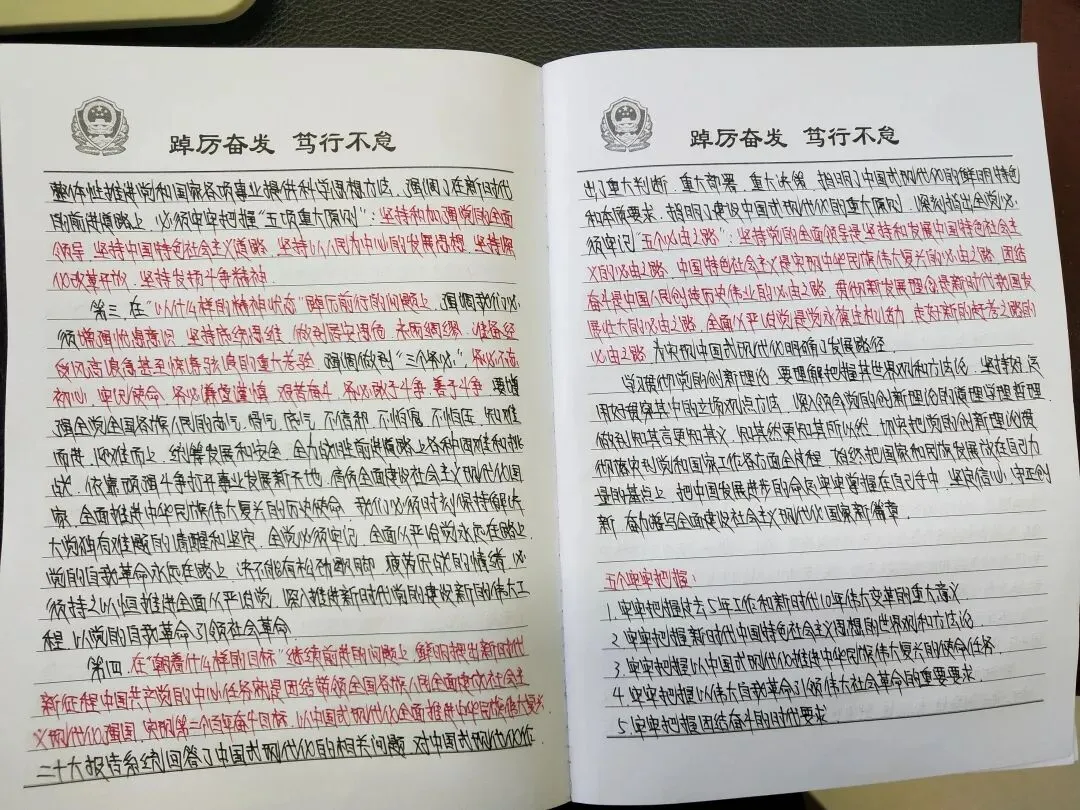 踔厉奋发 笃行不怠
整体性推进党和国家各项事业提供科学思想方法。强调了在新时代
的前进道路上,必须牢牢把握“五项重大原则”:坚持和加强党的全面
领导、坚持中国特色社会主义道路、坚持以人民为中心的发展思想、坚持深
化改革开放、坚持发扬斗争精神。
第三,在“以什么样的精神状态”踔厉前行的问题上,强调我们必
须增强忧患意识,坚持底线思维,做到居安思危、未雨绸缪,准备经
受风高浪急甚至惊涛骇浪的重大考验。强调做到“三个务必”,务必不忘
初心、牢记使命,务必谦虚谨慎、艰苦奋斗,务必敢于斗争、善于斗争。要增
强全党全国各族人民的志气、骨气、底气,不信邪、不怕鬼、不怕压,知难
而进、迎难而上,统筹发展和安全,全力战胜前进道路上各种困难和挑
战,依靠顽强斗争打开事业发展新天地。肩负全面建设社会主义现代化国
家、全面推进中华民族伟大复兴的历史使命,我们必须时刻保持解决
大党独有难题的清醒和坚定,全党必须牢记,全面从严治党永远在路上,
党的自我革命永远在路上,决不能有松劲歇脚、疲劳厌战的情绪,必
须持之以恒推进全面从严治党,深入推进新时代党的建设新的伟大工
程,以党的自我革命引领社会革命。
第四,在“朝着什么样的目标”继续前进的问题上,鲜明提出新时代
新征程中国共产党的中心任务就是团结带领全国各族人民全面建成社会主
义现代化强国、实现第二个百年奋斗目标,以中国式现代化全面推进中华民族伟大复兴。
二十大报告系统回答了中国式现代化的相关问题,对中国式现代化作
踔厉奋发 笃行不怠
出了重大判断、重大部署、重大决策,指明了中国式现代化的鲜明特色
和本质要求,指明了建设中国式现代化的重大原则,深刻指出全党必
须牢记“五个必由之路”:坚持党的全面领导是坚持和发展中国特色社会主
义的必由之路,中国特色社会主义是实现中华民族伟大复兴的必由之路,团结
奋斗是中国人民创造历史伟业的必由之路,贯彻新发展理念是新时代我国发
展壮大的必由之路,全面从严治党是党永葆生机活力、走好新的赶考之路的
必由之路。为实现中国式现代化明确了发展路径。
学习贯彻党的创新理论,要理解把握其世界观和方法论,坚持好、运
用好贯穿其中的立场观点方法,深入领会党的创新理论的道理学理哲理,
做到知其言更知其义、知其然更知其所以然,切实把党的创新理论贯
彻落实到党和国家工作各方面全过程,始终把国家和民族发展放在自己力
量的基点上,把中国发展进步的命运牢牢掌握在自己手中,坚定信心、守正创
新,奋力谱写全面建设社会主义现代化国家新篇章。
五个牢牢把握:
1.牢牢把握过去5年工作和新时代10年伟大变革的重大意义
2.牢牢把握新时代中国特色社会主义思想的世界观和方法论
3.牢牢把握以中国式现代化推进中华民族伟大复兴的使命任务
4.牢牢把握以伟大自我革命引领伟大社会革命的重要要求
5.牢牢把握团结奋斗的时代要求